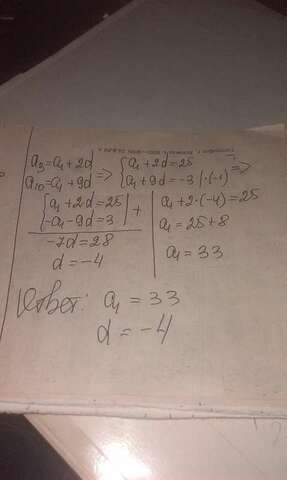 a₃=a₁+2d
a₁₀=a₁+9d => {a₁+2d=25
a₁+9d=-3 |·(-1) =>
{a₁+2d=25
-a₁-9d=3 | +
-7d=28
d=-4
a₁+2·(-4)=25
a₁=25+8
a₁=33
Ответ: a₁=33
d=-4